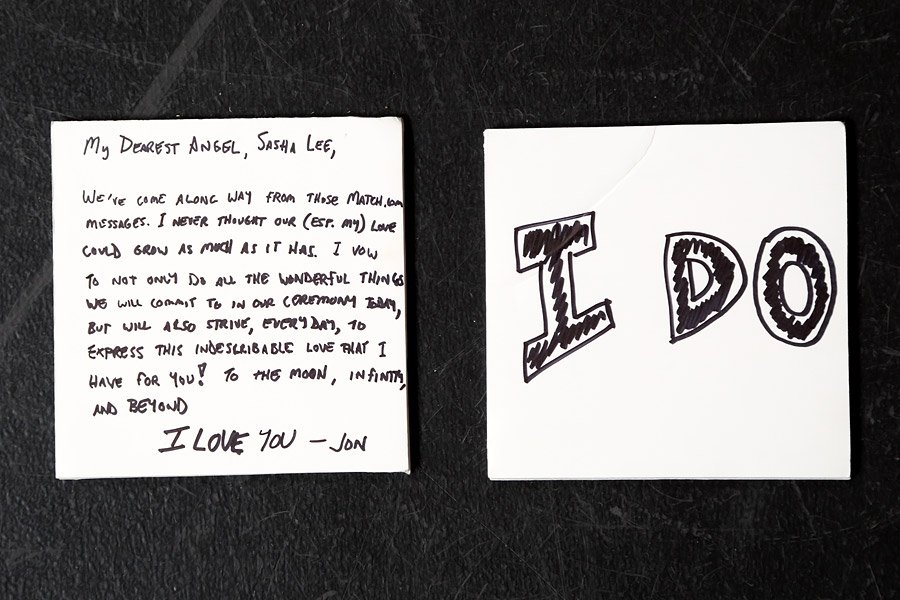 My DEAREST ANGEL, SASHA LEE,
WE'VE COME ALONG WAY FROM THOSE MATCH.COM
MESSAGES. I NEVER THOUGHT OUR (EST. MY) LOVE
COULD GROW AS MUCH AS IT HAS. I VOW
TO NOT ONLY DO ALL THE WONDERFUL THINGS
WE WILL COMMIT TO IN OUR CEREMONY TODAY,
BUT WILL ALSO STRIVE, EVERYDAY, TO
EXPRESS THIS INDESCRIBABLE LOVE THAT I
HAVE FOR YOU! TO THE MOON, INFINITY,
AND BEYOND
I LOVE YOU – JON
I DO